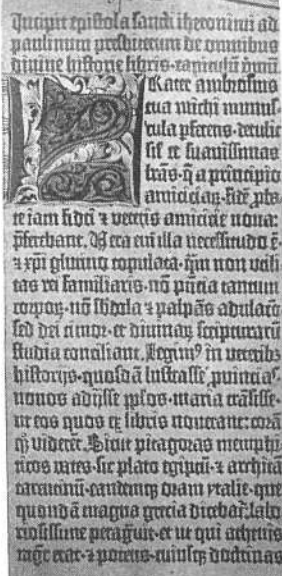 Incipit epistola sancti iheronimi ad
paulinum presbiterum de omnibus
diuine historie libris. capitulũ primũ.
Frater ambrosius
tua michi munus-
cula pferens. detulit
sil et suauissimas
lr̃as. q̃ a principio
amiciciaꝝ. fidẽ pba-
te iam fidei ⁊ veteris amicicie noua:
pferebant. Vera em̃ illa necessitudo ẽ.
⁊ xp̃i glutino copulata. qm̃ non vtili-
tas rei familiaris. nõ pñcia tantum
corpoꝝ. nõ sbdola ⁊ palpãs adulacõ.
sed dei timor. et diuinaꝝ scripturarũ
studia conciliant. Legimꝰ in veteribꝫ
historijs. quosdã lustrasse ꝓuincias.
nouos adijsse ppl̃os. maria trãsisse.
ut eos quos ex libris nouerant: corã
qꝫ viderẽt. Sicut pitagoras memphi-
ticos vates. sic plato egiptũ. ⁊ architã
tarentinũ. eandemqꝫ oram ytalie. que
quondã magna grecia dicebat̃. labo-
riosissime peragᵘit. et ut qui athenis
mgr̃ erat. ⁊ potens. cuiusqꝫ doctrinas